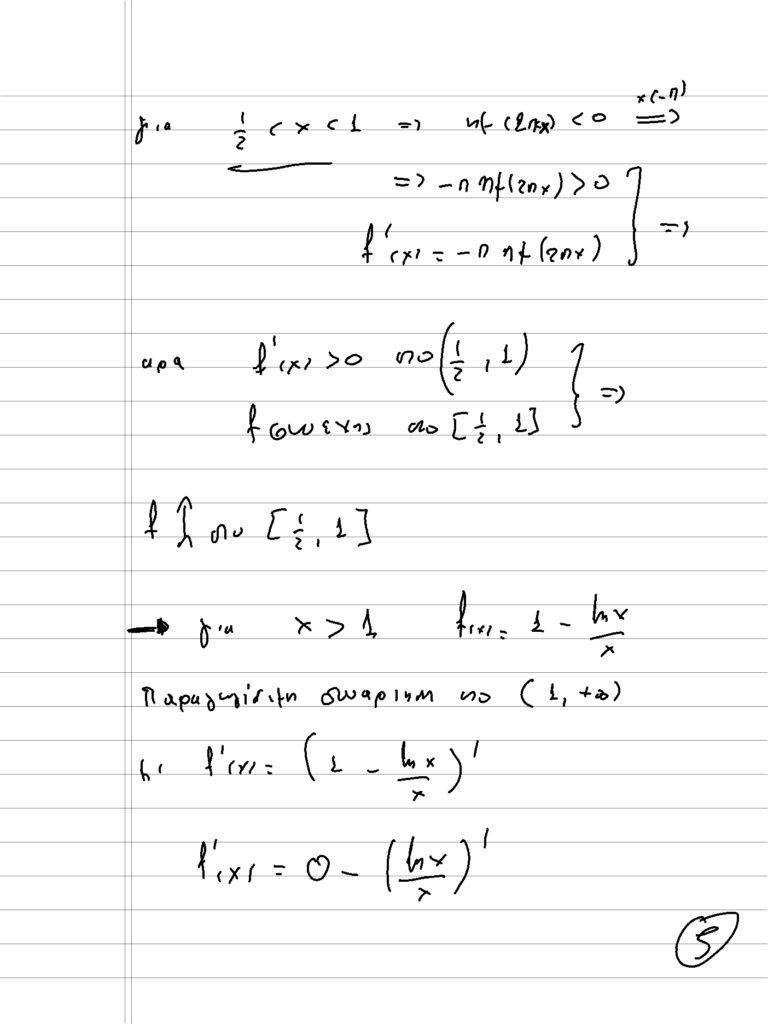 για 1/2 < x < 1 => ημ(2πx) < 0 =>^{x(-π)}
=> -π ημ(2πx) > 0
f'(x) = -π ημ(2πx) } =>
άρα f'(x) > 0 στο (1/2, 1)
f συνεχής στο [1/2, 1] } =>
f ↑ στο [1/2, 1]
→ για x > 1 f(x) = 1 - lnx/x
Παραγωγίσιμη συνάρτηση στο (1, +∞)
με f'(x) = (1 - lnx/x)'
f'(x) = 0 - (lnx/x)'
5